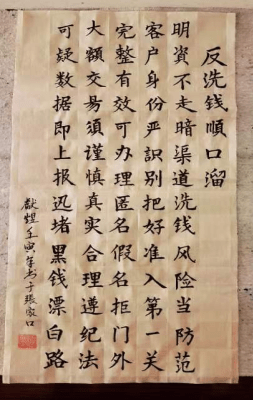 反洗钱順口溜
明資不走暗渠道洗钱风险当防范
客户身份严識别把好准入第一关
完整有效可办理匿名假名拒门外
大额交易須谨慎真实合理遵纪法
可疑数据即上报迅堵黑钱漂白路
猷煜壬寅年书于張家口